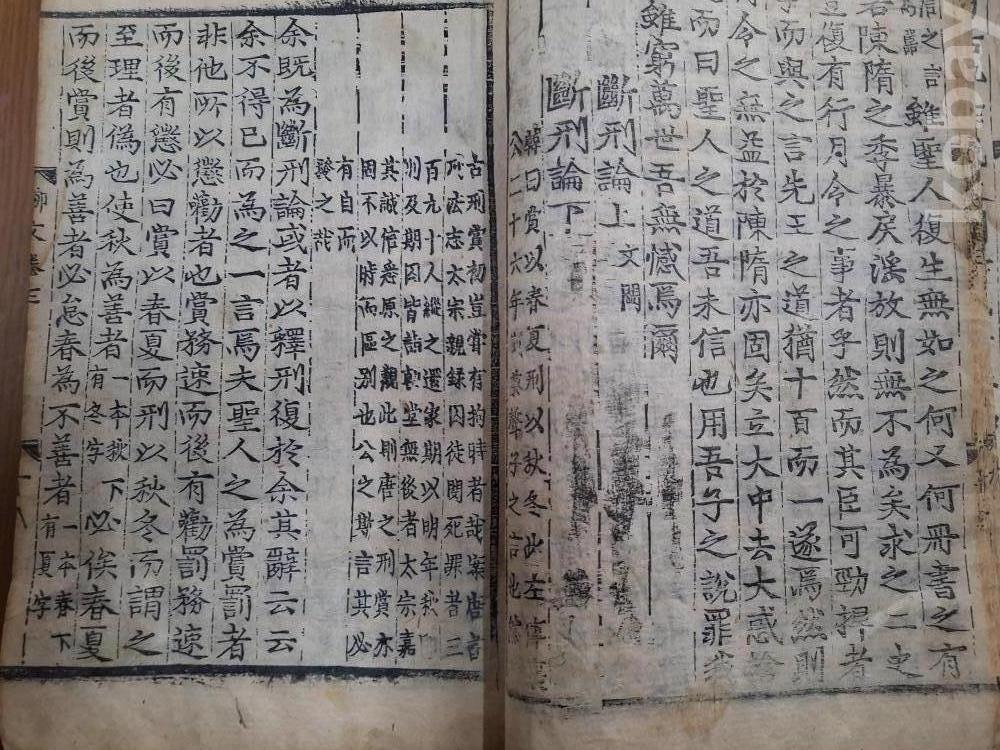 信之言 雖聖人復生無如之何又何冊書之有
陳隋之季暴戾淫放則無不為矣求之二史
豈復有行月令之事者乎然而其臣可勁捍者
而與之言先王之道猶十百而一遂焉然則
令之無益於陳隋亦固矣立大中去大惑捨
而曰聖人之道吾未信也用吾子之說罪我
雖窮萬世吾無憾焉爾
斷刑論上 文闕
斷刑論下
韓曰賞以春夏刑以秋冬出左傳襄
公二十六年蔡聲子之言也
古刑賞初豈嘗有拘時者哉案唐書
刑法志太宗親録囚徒閔死罪者三
百九十人縱之還家期以明年秋
刑及期囚皆詣朝堂無後者太宗嘉
其誠信悉原之觀此則唐之刑賞亦
固不以時而區別也公之斯言其必
有自而
發之哉
余既為斷刑論或者以釋刑復於余其辭云云
余不得已而為之一言焉夫聖人之為賞罰者
非他所以懲勸者也賞務速而後有勸罰務速
而後有懲必曰賞以春夏而刑以秋冬而謂之
至理者偽也使秋為善者一本秋下有冬字必俟春夏
而後賞則為善者必怠春為不善者一本春下有夏字
柳文卷三
kobay